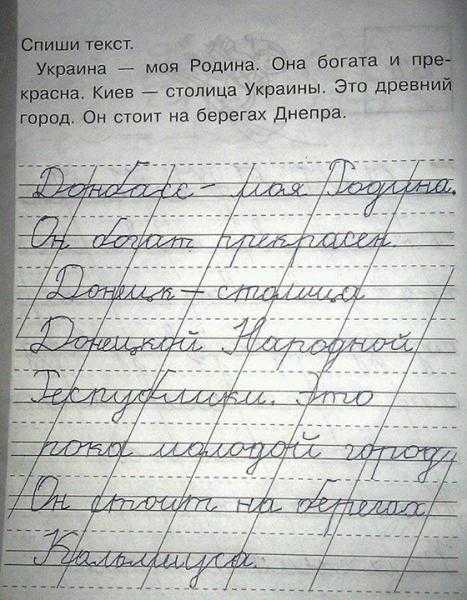 Спиши текст.
Украина — моя Родина. Она богата и пре-
красна. Киев — столица Украины. Это древний
город. Он стоит на берегах Днепра.
Донбасс - моя Родина.
Он богат прекрасен.
Донецк - столица
Донецкой Народной
Республики. Это
пока молодой город
Он стоит на берегах
Кальмиуса.